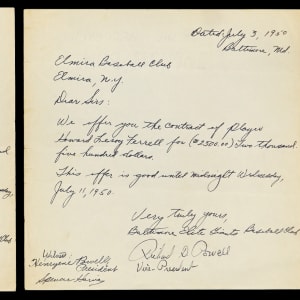 Dated, July 3, 1950
Baltimore, Md.
Elmira Baseball Club
Elmira, N.Y.
Dear Sirs:
We offer you the contract of Player
Howard Leroy Ferrell for ($2500.00) Two thousand
five hundred dollars.
This offer is good until midnight Wednesday,
July 11, 1950.
Very truly yours,
Baltimore Elite Giants Baseball Club
Richard D. Powell
Vice-President
Witness
Powell
President